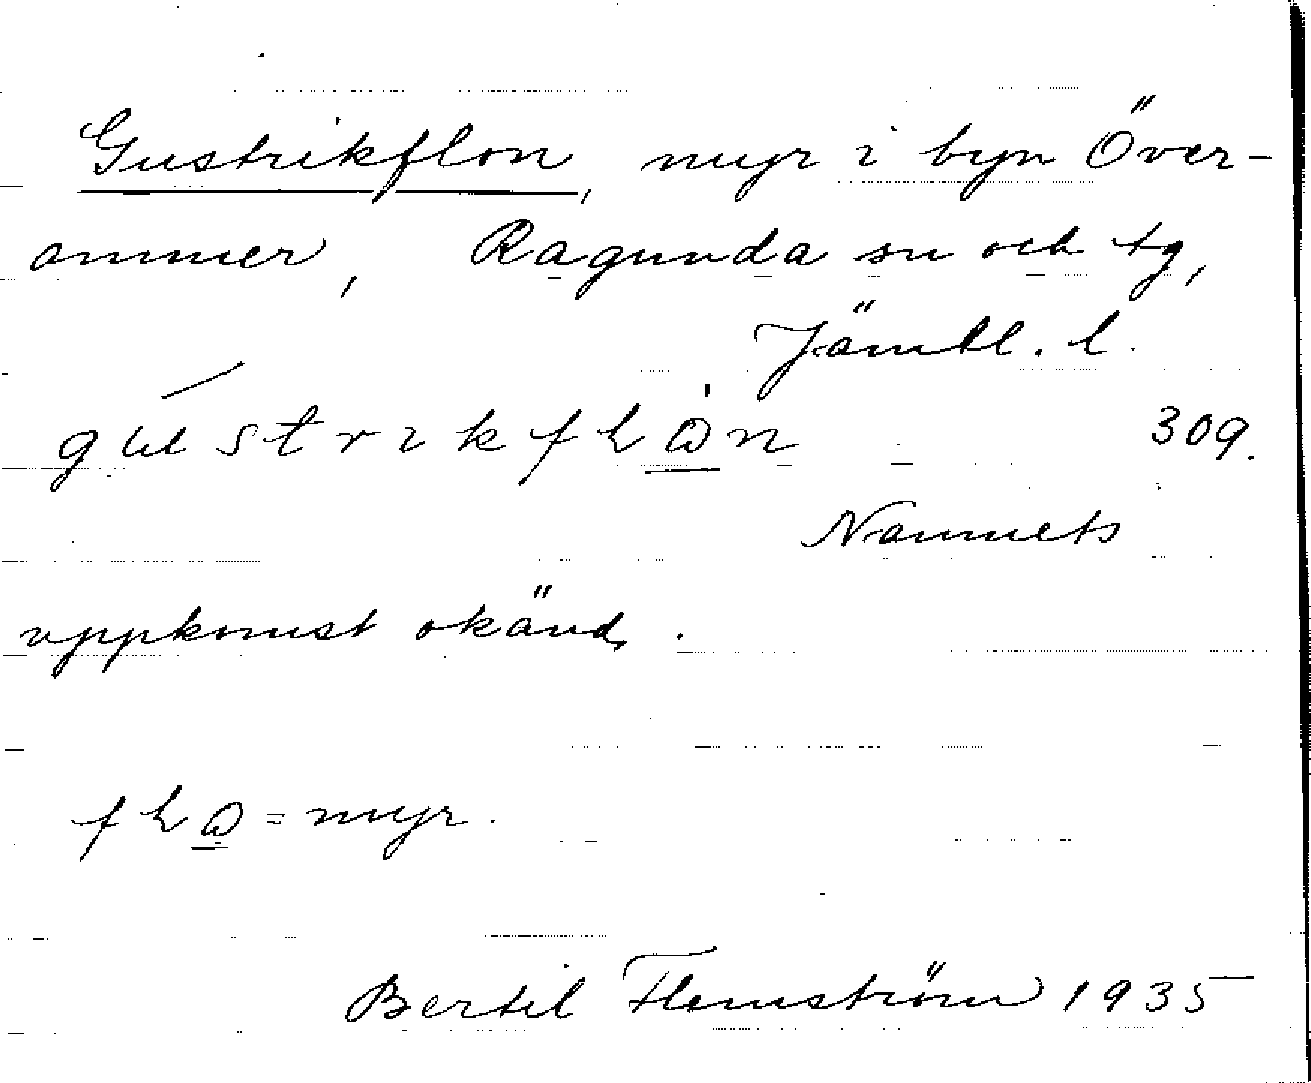 Gustrikflon, myr i byn Över-
ammer, Ragunda sn och tg,
Jämtl. l.
309.
Namnets
uppkomst okänd.
= myr.
Bertil Flemström 1935